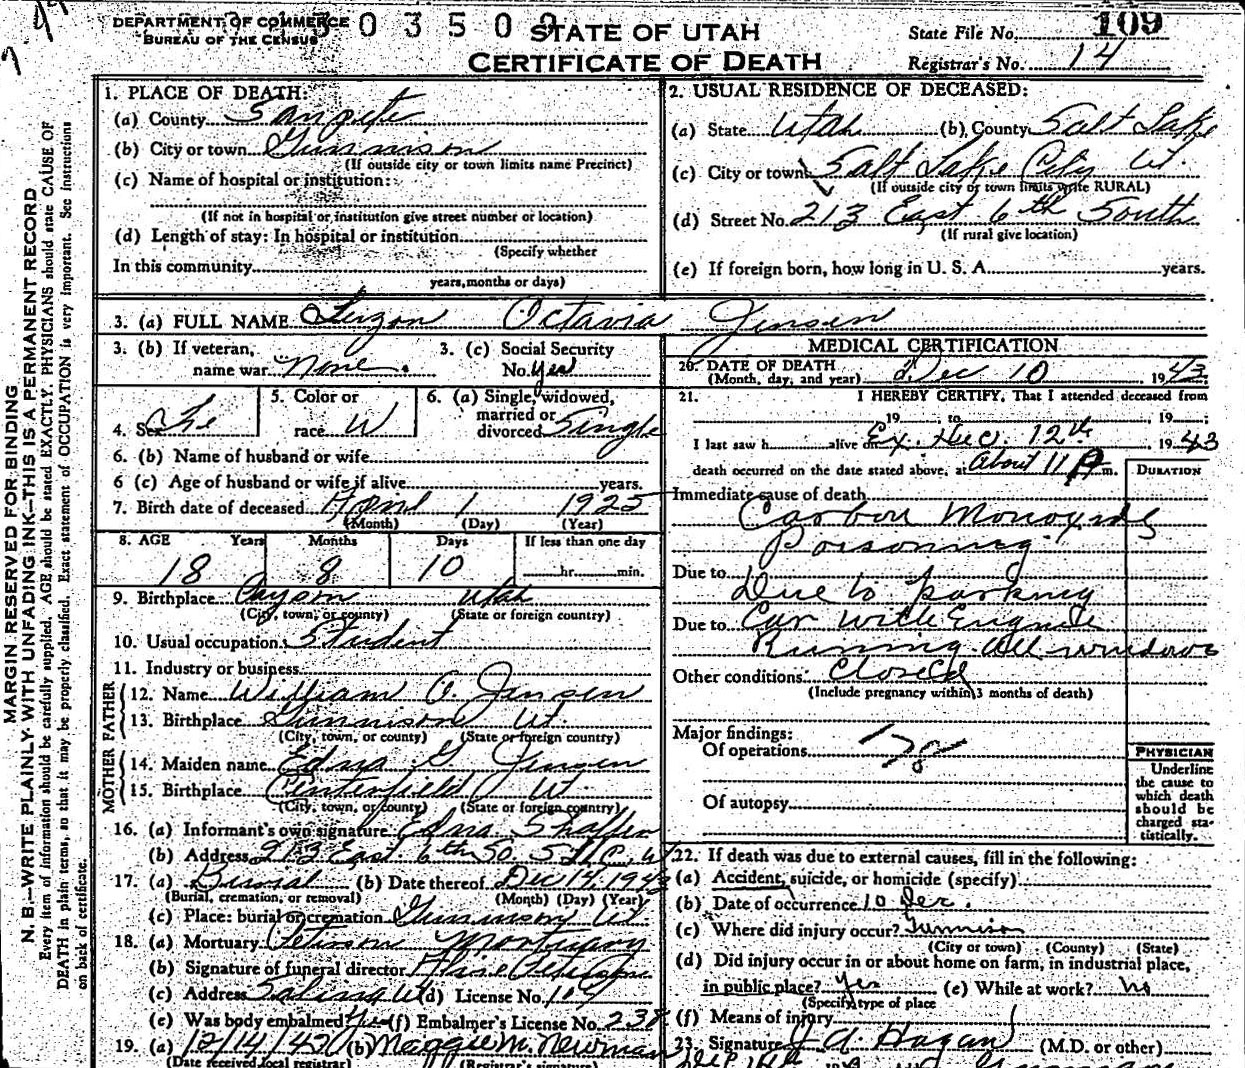 DEPARTMENT OF COMMERCE
BUREAU OF THE CENSUS
0 3 5 0
STATE OF UTAH
CERTIFICATE OF DEATH
State File No. 109
Registrar's No. 14
MARGIN RESERVED FOR BINDING
N. B.—WRITE PLAINLY WITH UNFADING INK—THIS IS A PERMANENT RECORD
Every item of information should be carefully supplied. AGE should be stated EXACTLY. PHYSICIANS should state CAUSE OF
DEATH in plain terms, so that it may be properly classified. Exact statement of OCCUPATION is very important. See instructions
on back of certificate.
1. PLACE OF DEATH:
(a) County Sanpete
(b) City or town Gunnison
(If outside city or town limits name Precinct)
(c) Name of hospital or institution:
(If not in hospital or institution give street number or location)
(d) Length of stay: In hospital or institution
(Specify whether
In this community
years, months or days)
2. USUAL RESIDENCE OF DECEASED:
(a) State Utah (b) County Salt Lake
(c) City or town Salt Lake City Ut.
(If outside city or town limits write RURAL)
(d) Street No. 213 East 6th South
(If rural give location)
(e) If foreign born, how long in U. S. A. years.
3. (a) FULL NAME Octavia Jensen
3. (b) If veteran, name war None.
3. (c) Social Security No. yes
4. Sex
5. Color or race W
6. (a) Single, widowed, married or divorced Single
6. (b) Name of husband or wife
6 (c) Age of husband or wife if alive years.
7. Birth date of deceased April 1 1925
(Month) (Day) (Year)
8. AGE Years Months Days If less than one day
18 8 10 hr. min.
9. Birthplace Payson Utah
(City, town, or county) (State or foreign country)
10. Usual occupation Student
11. Industry or business
FATHER
12. Name William O. Jensen
13. Birthplace Gunnison Ut.
(City, town, or county) (State or foreign country)
MOTHER
14. Maiden name Edna G Jensen
15. Birthplace Centerfield Ut.
(City, town, or county) (State or foreign country)
16. (a) Informant's own signature Edna
(b) Address 213 East 6th So. S.L.C., Ut
17. (a) Burial (b) Date thereof Dec 14, 1943
(Burial, cremation, or removal) (Month) (Day) (Year)
(c) Place: burial or cremation Gunnison Ut.
18. (a) Mortuary Peterson Mortuary
(b) Signature of funeral director
(c) Address Salina Ut (d) License No. 109
(e) Was body embalmed? (f) Embalmer's License No. 238
19. (a) 12/14/43 (b) Maggie M. Newman
(Date received local registrar) (Registrar's signature)
MEDICAL CERTIFICATION
20. DATE OF DEATH
(Month, day, and year) Dec 10, 1943
21. I HEREBY CERTIFY, That I attended deceased from
19 to 19
I last saw h alive on Ex. Dec. 12th 1943
death occurred on the date stated above, at About 11 P m.
DURATION
Immediate cause of death
Carbon Monoxide
Poisoning
Due to Due to parking
Due to Car with Engine
Running All windows
Other conditions: Closed
(Include pregnancy within 3 months of death)
Major findings:
Of operations
Of autopsy
PHYSICIAN
Underline
the cause to
which death
should be
charged sta-
tistically.
22. If death was due to external causes, fill in the following:
(a) Accident, suicide, or homicide (specify)
(b) Date of occurrence 10 Dec.
(c) Where did injury occur? Gunnison
(City or town) (County) (State)
(d) Did injury occur in or about home on farm, in industrial place,
in public place? Yes (e) While at work? No
(Specify type of place
(f) Means of injury
23. Signature J. A. Hagan (M.D. or other)